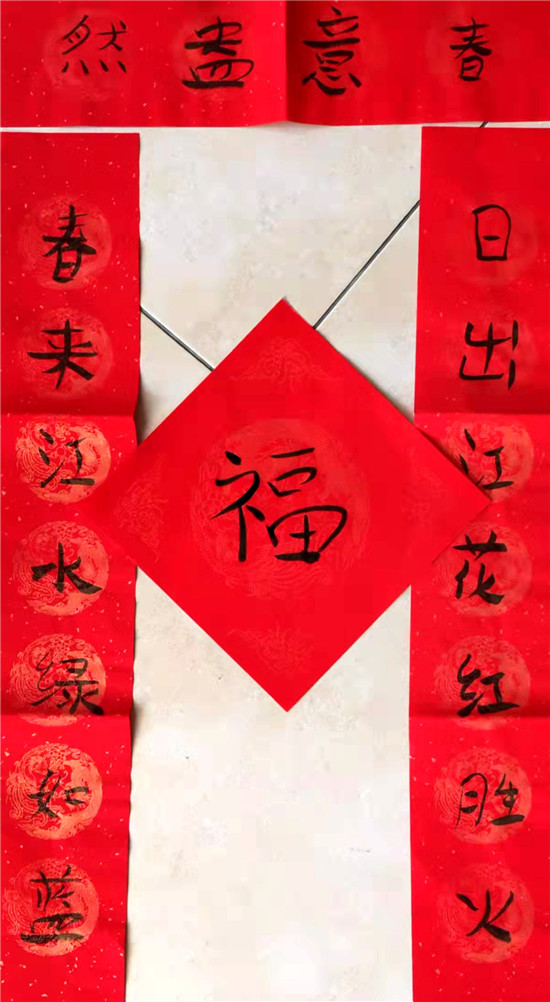 春意盎然
日出江花红胜火
春来江水绿如蓝
福